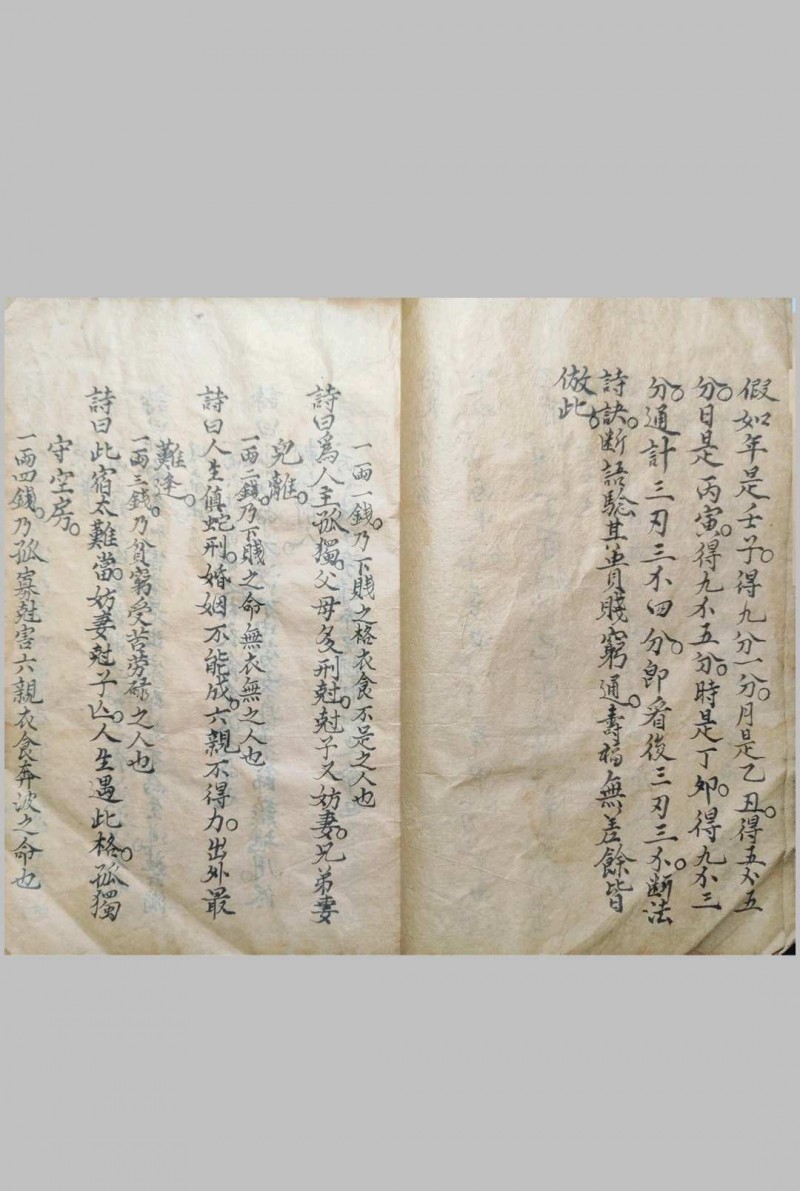 假如年是壬子。得九分一分。月是乙丑。得五分五
分。日是丙寅。得九分五分。時是丁夘。得九分三
分。通計三刄三分四分。即看後三刄三分。断法
詩訣。断語驗其貴賤窮通。壽福無差餘皆
倣此。
一両一錢。乃下賤之格衣食不足之人也
詩曰爲人主孤獨。父母多刑尅。尅子又妨妻。兄弟妻
兒離。
一両二錢。乃下賤之命無衣無之人也
詩曰人生值蛇刑。婚姻不能成。六親不得力。出外最
難逢。
一両三錢。乃貧窮受苦劳碌之人也
詩曰此宿太難當。妨妻尅子亾。人生遇此格。孤獨
守空房。
一両四錢。乃孤寡尅害六親衣食奔波之命也